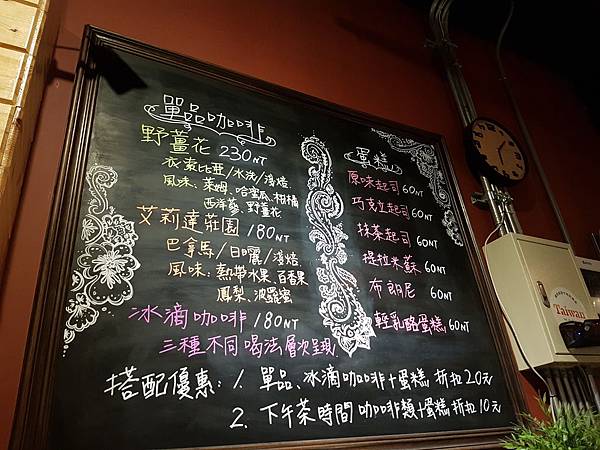 單品咖啡
野薑花 230NT
衣索比亞/水洗/淺焙
風味、萊姆、哈密瓜、柑橘
西洋蔘、野薑花
艾莉達莊園 180NT
巴拿馬/日曬/淺焙
風味:熱帶水果、百香果
鳳梨、波羅蜜
冰滴咖啡 180NT
三種不同喝法層次呈現
蛋糕
原味起司 60NT
巧克立起司 60NT
抹茶起司 60NT
提拉米蘇 60NT
布朗尼 60NT
輕乳酪蛋糕 60NT
搭配優惠:1. 單品、冰滴咖啡+蛋糕 折扣20元
2. 下午茶時間 咖啡類+蛋糕 折扣10元
Taiwan